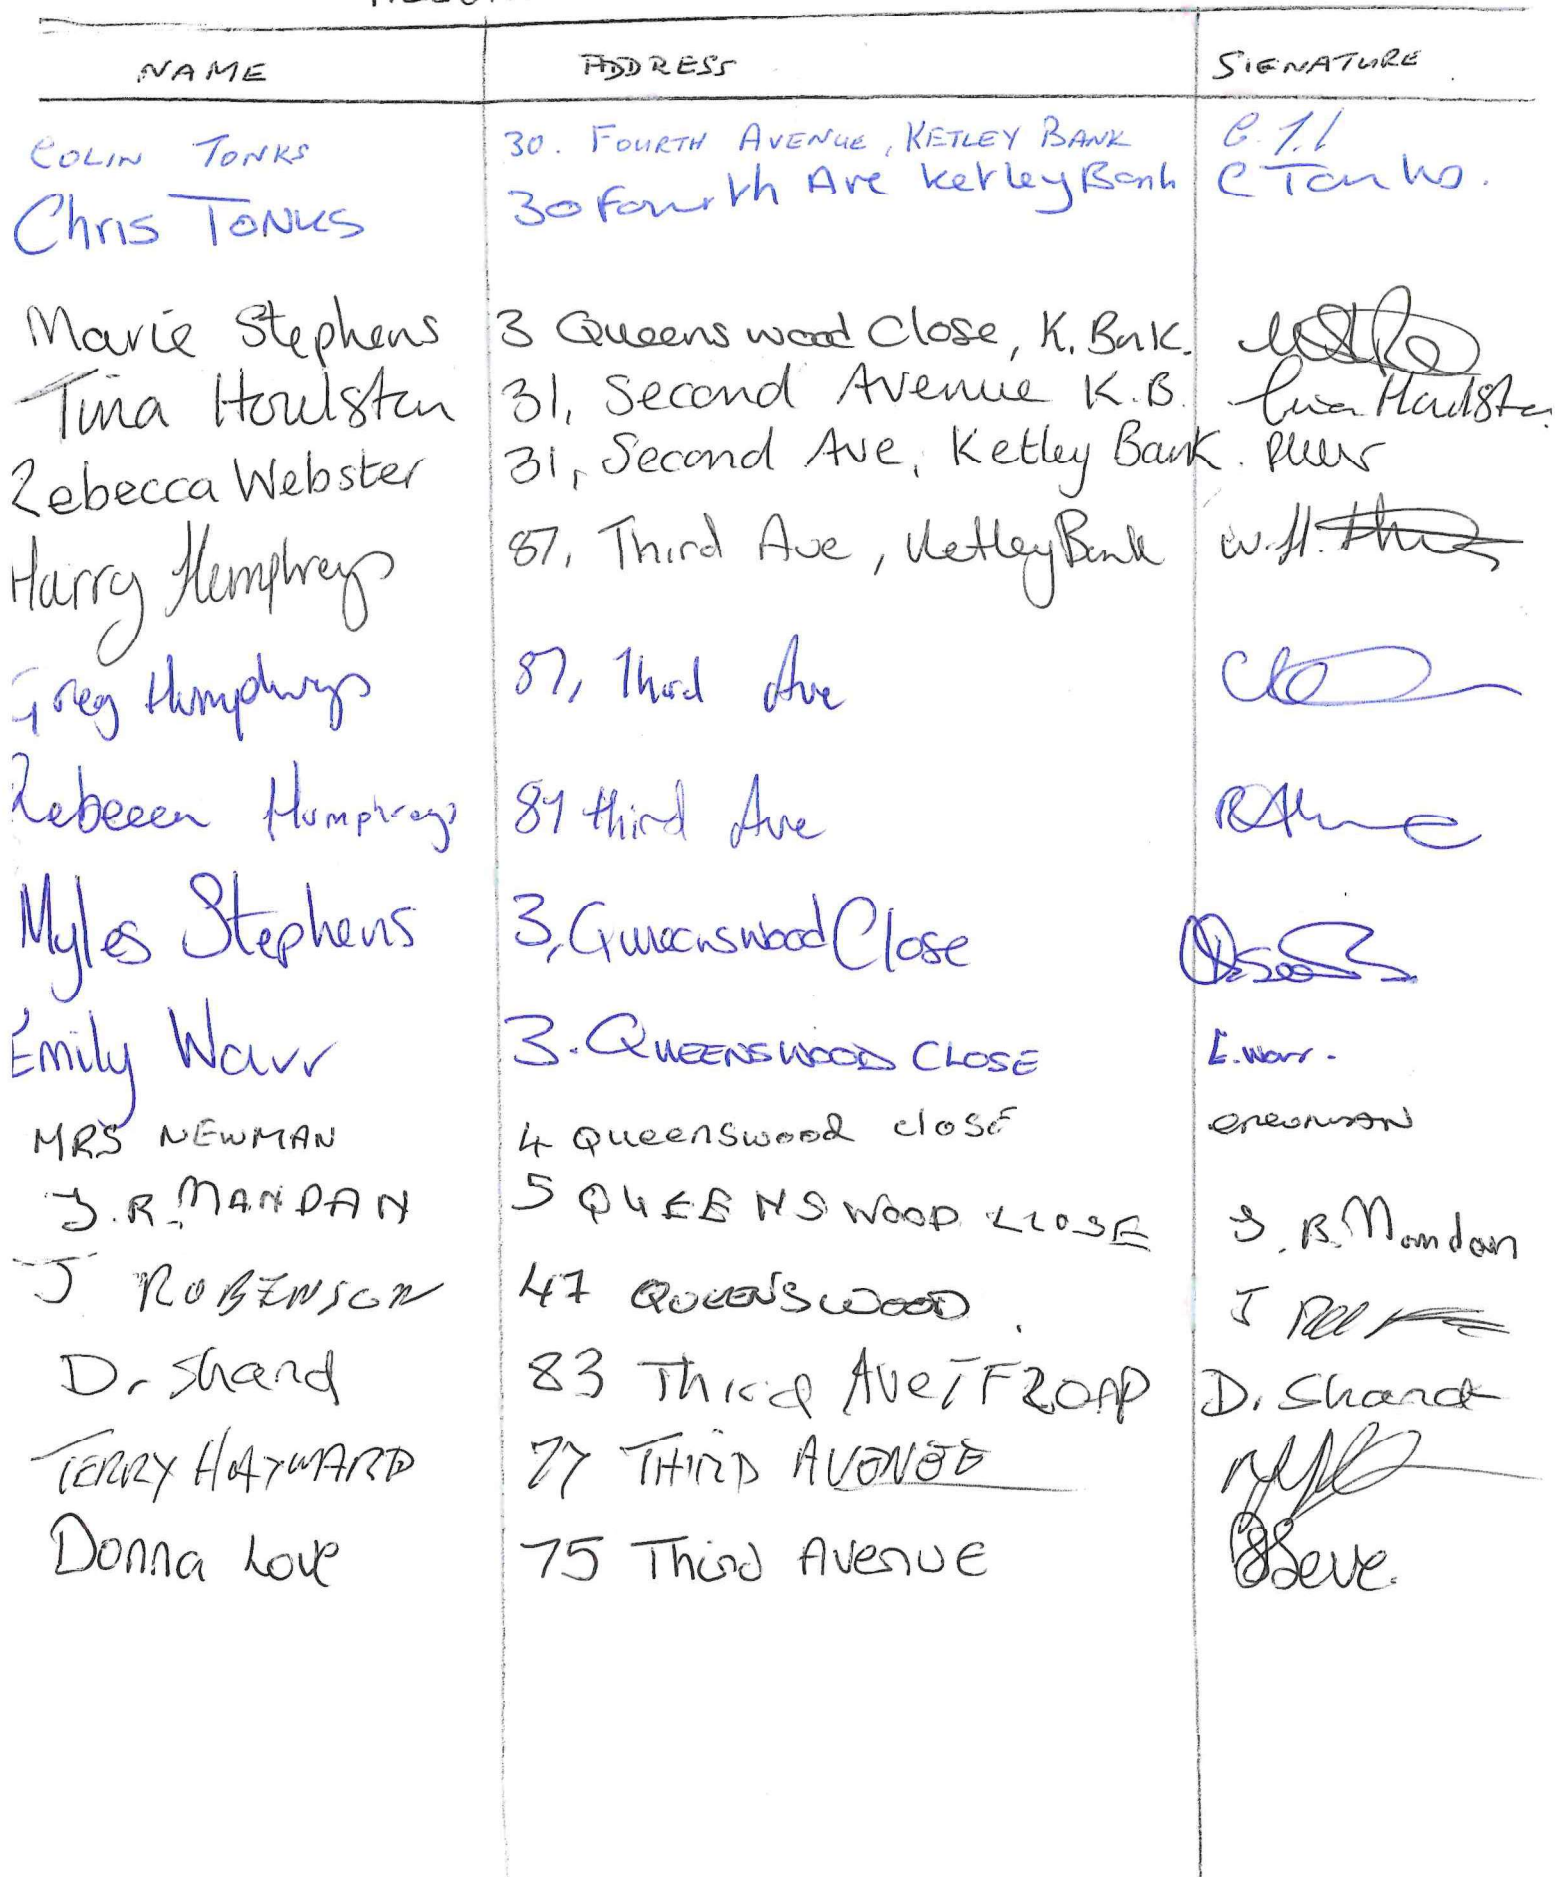 NAME ADDRESS SIGNATURE
COLIN TONKS 30. FOURTH AVENUE, KETLEY BANK
Chris TONKS 30 Fourth Ave Ketley Bank C Tonks.
Marie Stephens 3 Queenswood Close, K. Bank.
Tina Houlston 31, Second Avenue K.B. Tina Houlston
Rebecca Webster 31, Second Ave, Ketley Bank.
Harry Humphreys 87, Third Ave, Ketley Bank W.H.
Greg Humphreys 87, Third Ave
Rebecca Humphreys 87 third Ave
Myles Stephens 3, Queenswood Close
Emily Warr 3. QUEENSWOOD CLOSE E. Warr.
MRS NEWMAN 4 Queenswood close
J.R. MANDAN 5 QUEENSWOOD CLOSE J. R. Mandan
J ROBINSON 47 QUEENSWOOD. J
D. Shand 83 Third Ave TF2 0AP D. Shand
TERRY HAYWARD 77 THIRD AVENUE
Donna Love 75 Third AVENUE